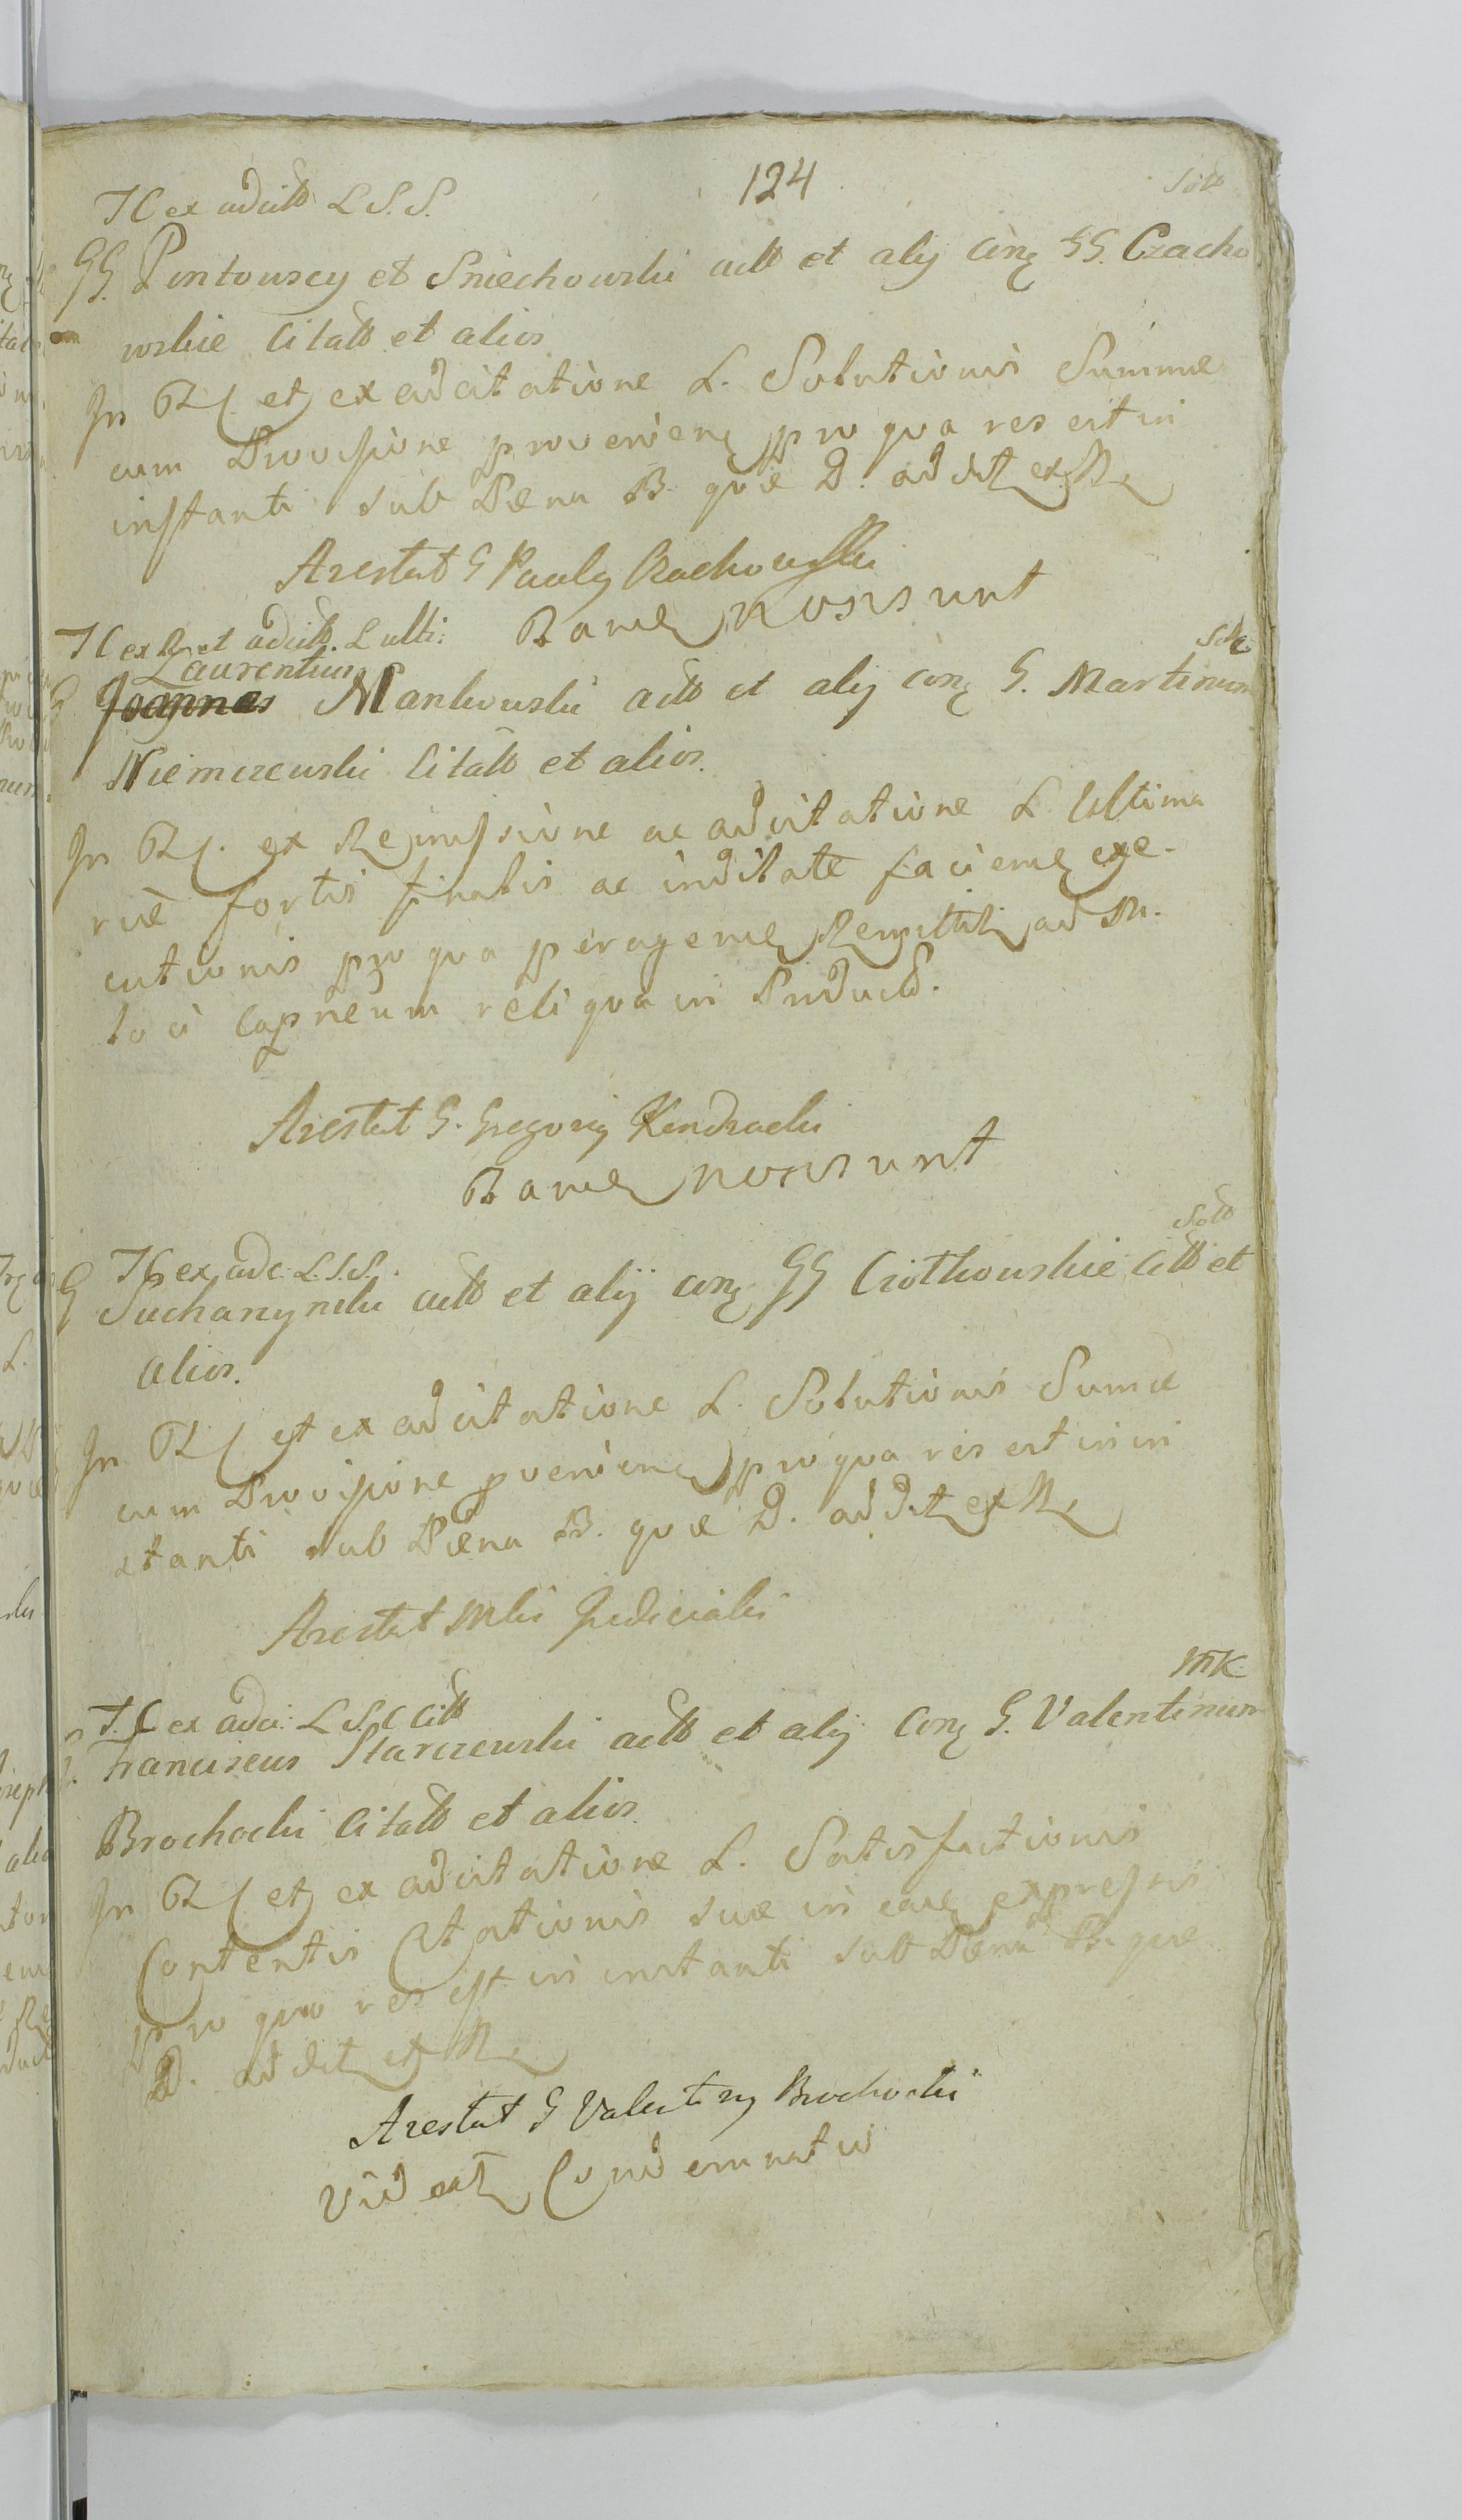 124
Sott
TC ex adcitt L S. S.
GG. Pintowscy et Sniechowski actt et alij cing GG. Czacho
wskie Citatt et alios
In TC et ex adcitatione L. Solutionis Summæ
cum Provisione provenien pro qua res est in
instanti sub Pæna B. quæ D. addit ex R
Arestat G Pauly Czachowski
Partes Non sunt
TC ex R et adcitt. L ulti:
Sotte
Laurentius
G Joannes Mankowski actt et alij cong G. Martinum
Niemczewski Citatt et alios.
In TC. ex Remissione ac adcitatione L. Ultima
riæ fortis finalis ac inditate faciend exe-
cutionis pro qua peragend Remittit ad M.
loci Capneum reliqua in Producto.
Arestat G. Gregorij Kendracki
Partes Non sunt
Sott
TC ex adc: L.S.S.
G Suchanynski actt et alij cong GG Ciotkowskie Citt et
alios.
In TC et ex adcitatione L. Solutionis Sumæ
cum Provisione provenien pro qua res est in in
stanti sub Pæna B. quæ D. addit ex R
Arestat Mlis Judicialis
MK
T. C ex adci: L S. C Citt
G. Franciscus Starczewski actt et alij Cong G. Valentinum
Brochocki Citatt et alios.
In TC et ex adcitatione L. Satisfactionis
Contentis Citationis suæ in ead expressis
pro quo res est in instanti sub Pæna B. quæ
D. addit ex R
Arestat G Valentinj Brochocki
Videat Condemnatio